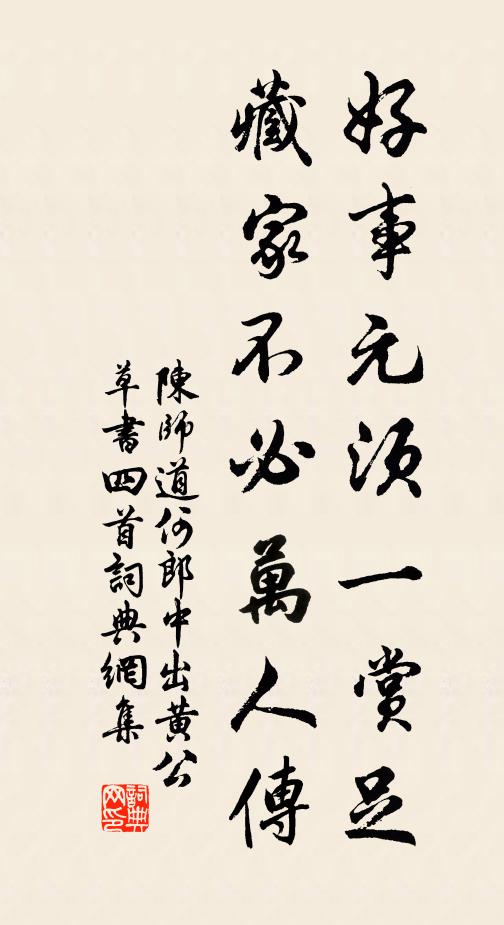 好事元須一賞足
藏家不必萬人傳
陳師道何郎中出黄公
草書四首詞典網集
詞典网印